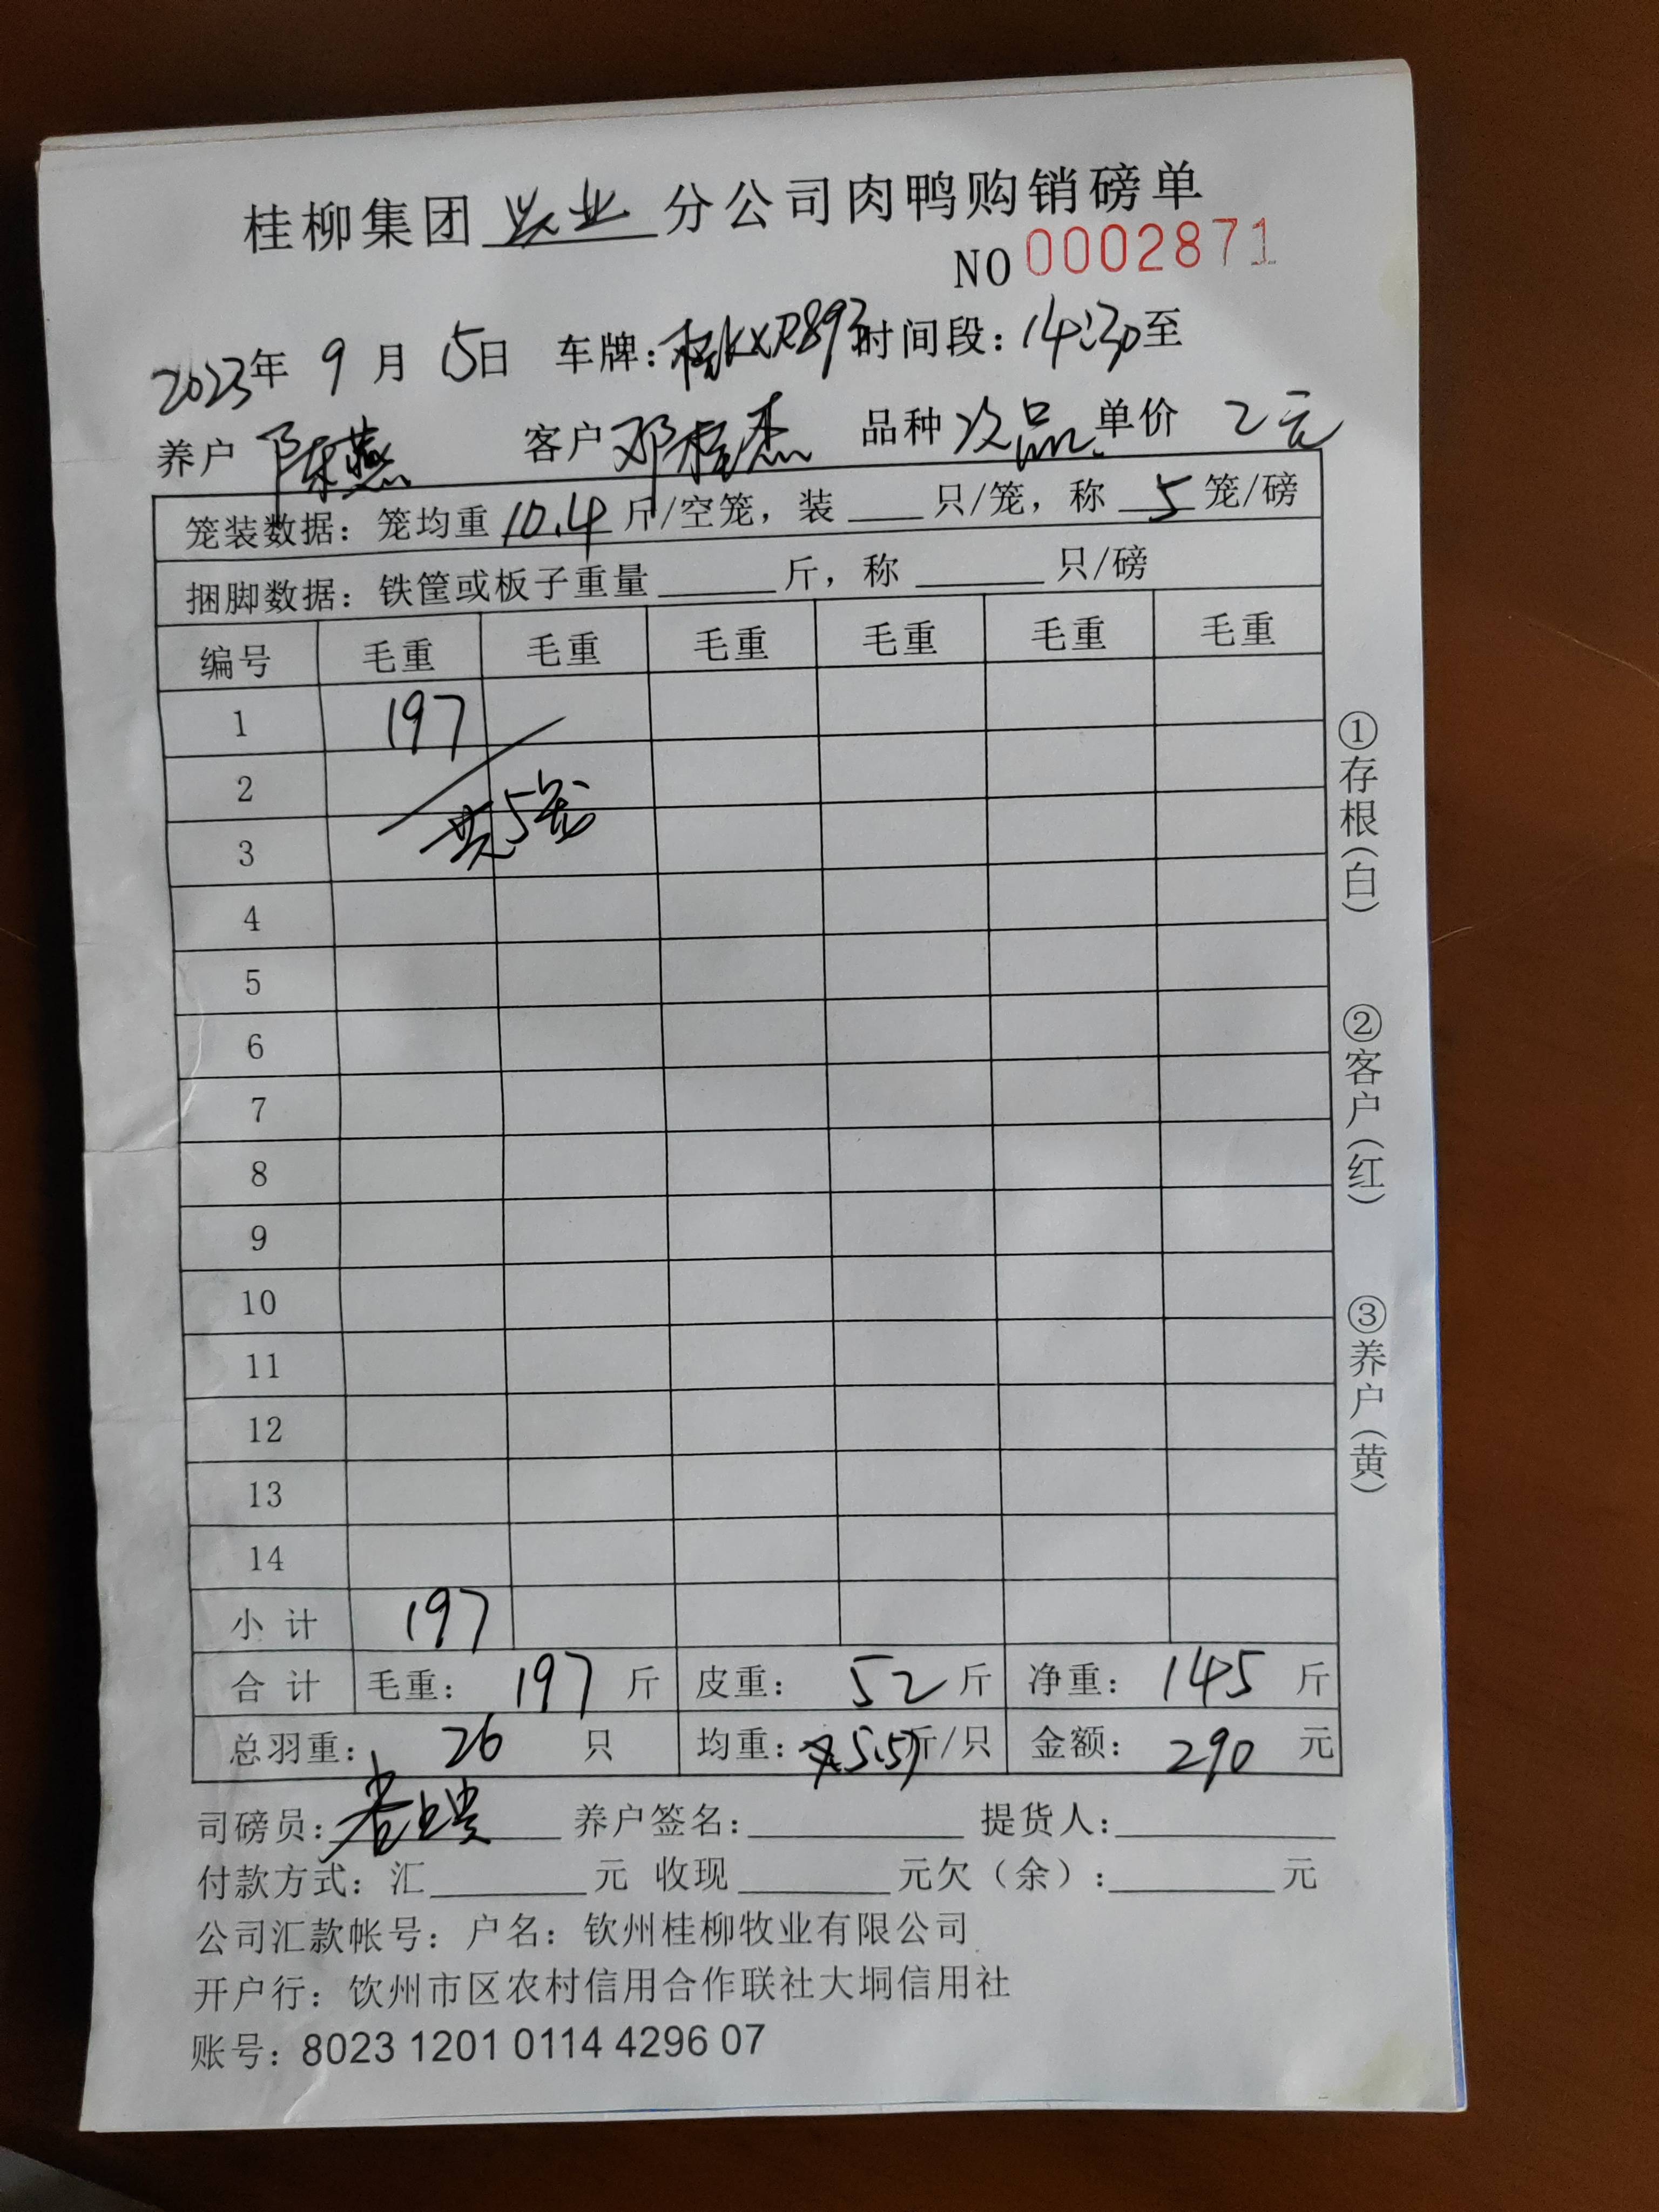 桂柳集团 兴业 分公司肉鸭购销磅单
NO 0002871
2023年 9 月 15日 车牌:桂KXR893 时间段:14:30至
养户 陈燕 客户 邓桂杰 品种 次品 单价 2元
笼装数据:笼均重 10.4 斤/空笼,装____只/笼,称 5 笼/磅
捆脚数据:铁筐或板子重量______斤,称______只/磅
编号 毛重 毛重 毛重 毛重 毛重 毛重
1 197
2
共5笼
3
4
5
6
7
8
9
10
11
12
13
14
小 计 197
合 计 毛重: 197 斤 皮重: 52 斤 净重: 145 斤
总羽重: 26 只 均重: 5.57斤/只 金额: 290 元
司磅员: 养户签名:__________ 提货人:__________
付款方式:汇________元 收现________元欠(余):________元
公司汇款帐号:户名:钦州桂柳牧业有限公司
开户行:饮州市区农村信用合作联社大垌信用社
账号:8023 1201 0114 4296 07
①存根(白)
②客户(红)
③养户(黄)